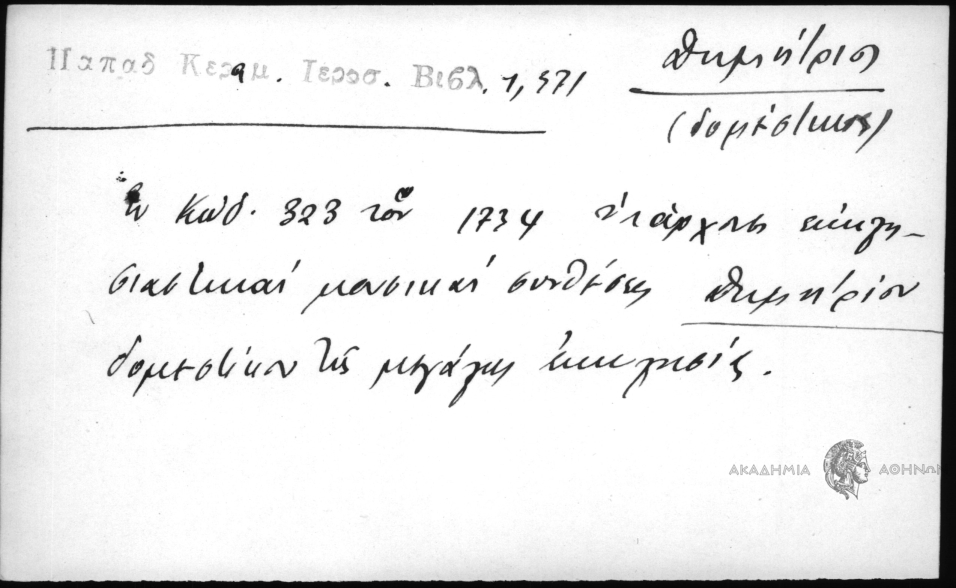 Παπαδ Κεραμ. Ιεροσ. Βιβλ. 1, 371
Δημήτριος
(δομέστικος)
Ἐν Κώδ. 323 τοῦ 1734 ὑπάρχουσι ἐκκλη-
σιαστικαί μουσικαί συνθέσεις Δημητρίου
δομεστίκου τῆς μεγάλης ἐκκλησίας.
ΑΚΑΔΗΜΙΑ ΑΘΗΝΩΝ